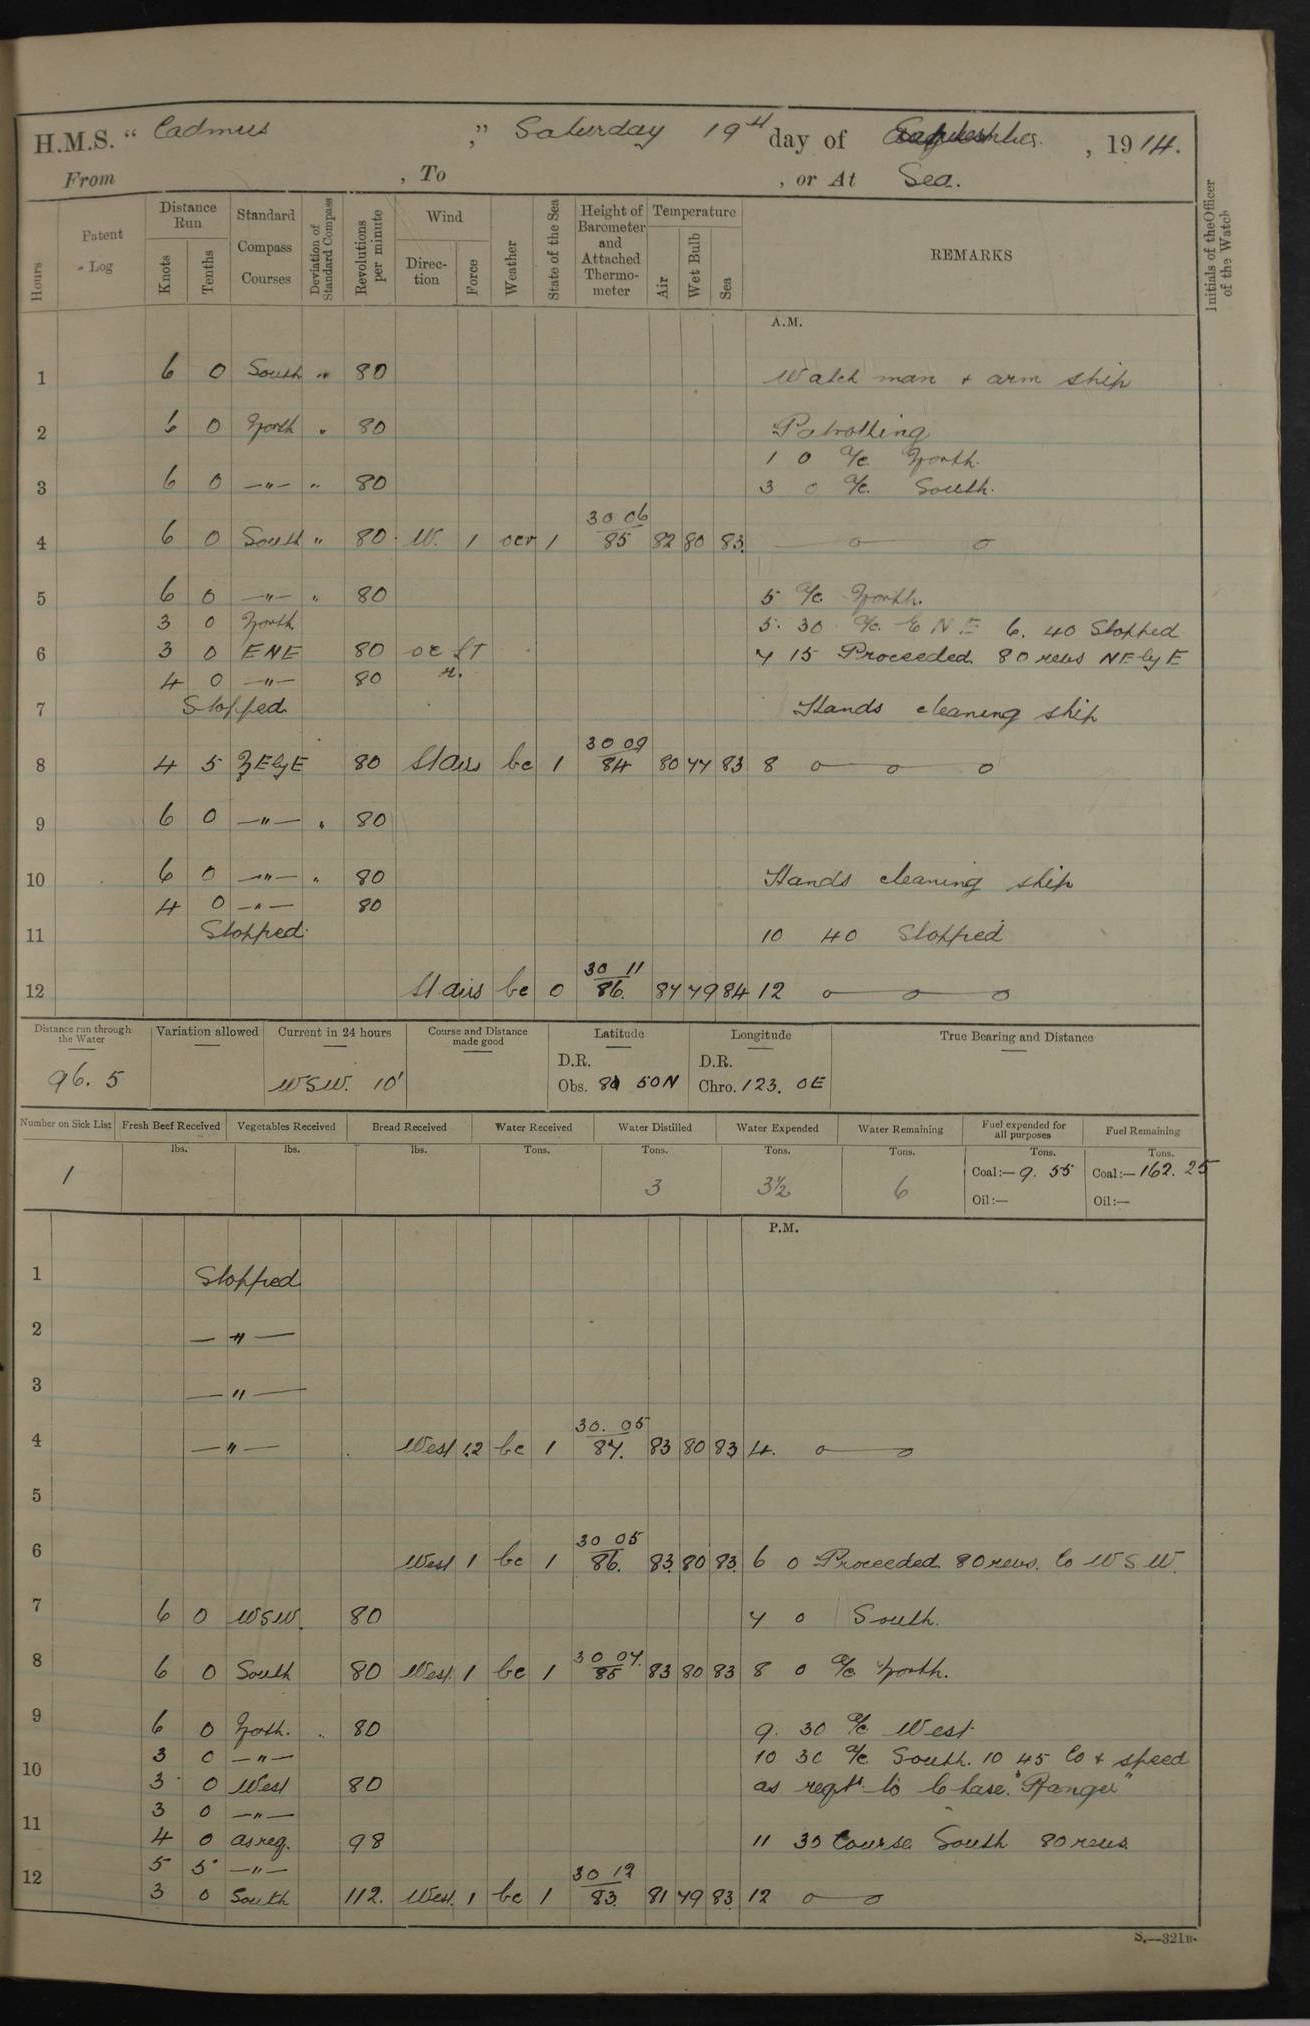 H.M.S. “ Cadmus ,” Saturday 19th day of September. , 1914.
From , To , or At Sea.
Hours
Patent Log
Distance Run
Knots
Tenths
Standard Compass Courses
Deviation of Standard Compass
Revolutions per minute
Wind
Direction
Force
Weather
State of the Sea
Height of Barometer and Attached Thermometer
Temperature
Air
Wet Bulb
Sea
REMARKS
Initials of the Officer of the Watch
A.M.
1 6 0 South " 80 Watch man + arm ship
2 6 0 North " 80 Patrolling
1 0 A/c North.
3 6 0 —"— " 80 3 0 A/c. South.
30 06
4 6 0 South " 80 W. 1 ocr 1 85 82 80 83
5 6 0 —"— " 80 5 A/c North.
3 0 North 5. 30 A/c. E N E 6. 40 Stopped
6 3 0 ENE 80 7 15 Proceeded. 80 revs NEbyE
4 0 —"— 80
7 Stopped Hands cleaning ship
30 09
8 4 5 NEbyE 80 Stairs bc 1 84 80 77 83 8
9 6 0 —"— " 80
10 6 0 —"— " 80 Hands cleaning ship
4 0 —"— 80
11 Stopped 10 40 Stopped
30 11
12 Stairs bc 0 86. 87 79 84 12
Distance run through the Water
Variation allowed
Current in 24 hours
Course and Distance made good
Latitude
Longitude
True Bearing and Distance
D.R. D.R.
96. 5 WSW. 10' Obs. 50N Chro. 123. 0E
Number on Sick List
Fresh Beef Received
Vegetables Received
Bread Received
Water Received
Water Distilled
Water Expended
Water Remaining
Fuel expended for all purposes
Fuel Remaining
lbs. lbs. lbs. Tons. Tons. Tons. Tons. Tons. Tons.
1 3 3½ 6 Coal:—9. 55 Coal:—162. 25
Oil:— Oil:—
P.M.
1 Stopped
2 — " —
3 — " —
30. 05
4 — " — West 1.2 bc 1 87. 83 80 83 4.
5
30 05
6 West 1 bc 1 86. 83 80 83 6 0 Proceeded 80 revs. Co WSW.
7 6 0 WSW. 80 7 0 South.
30 07.
8 6 0 South 80 West. 1 bc 1 85 83 80 83 8 0 A/c North.
9 6 0 North. " 80 9. 30 A/c West.
3 0 —"— 10 30 A/c South. 10 45 Co + speed
10 3 0 West 80 as reqd to Chase. "Ranger"
3 0 —"—
11 4 0 as req. 98 11 30 Course South 80 revs.
5 5 —"—
30 12
12 3 0 South 112. West. 1 bc 1 83. 81 79 83. 12
S.—321B.